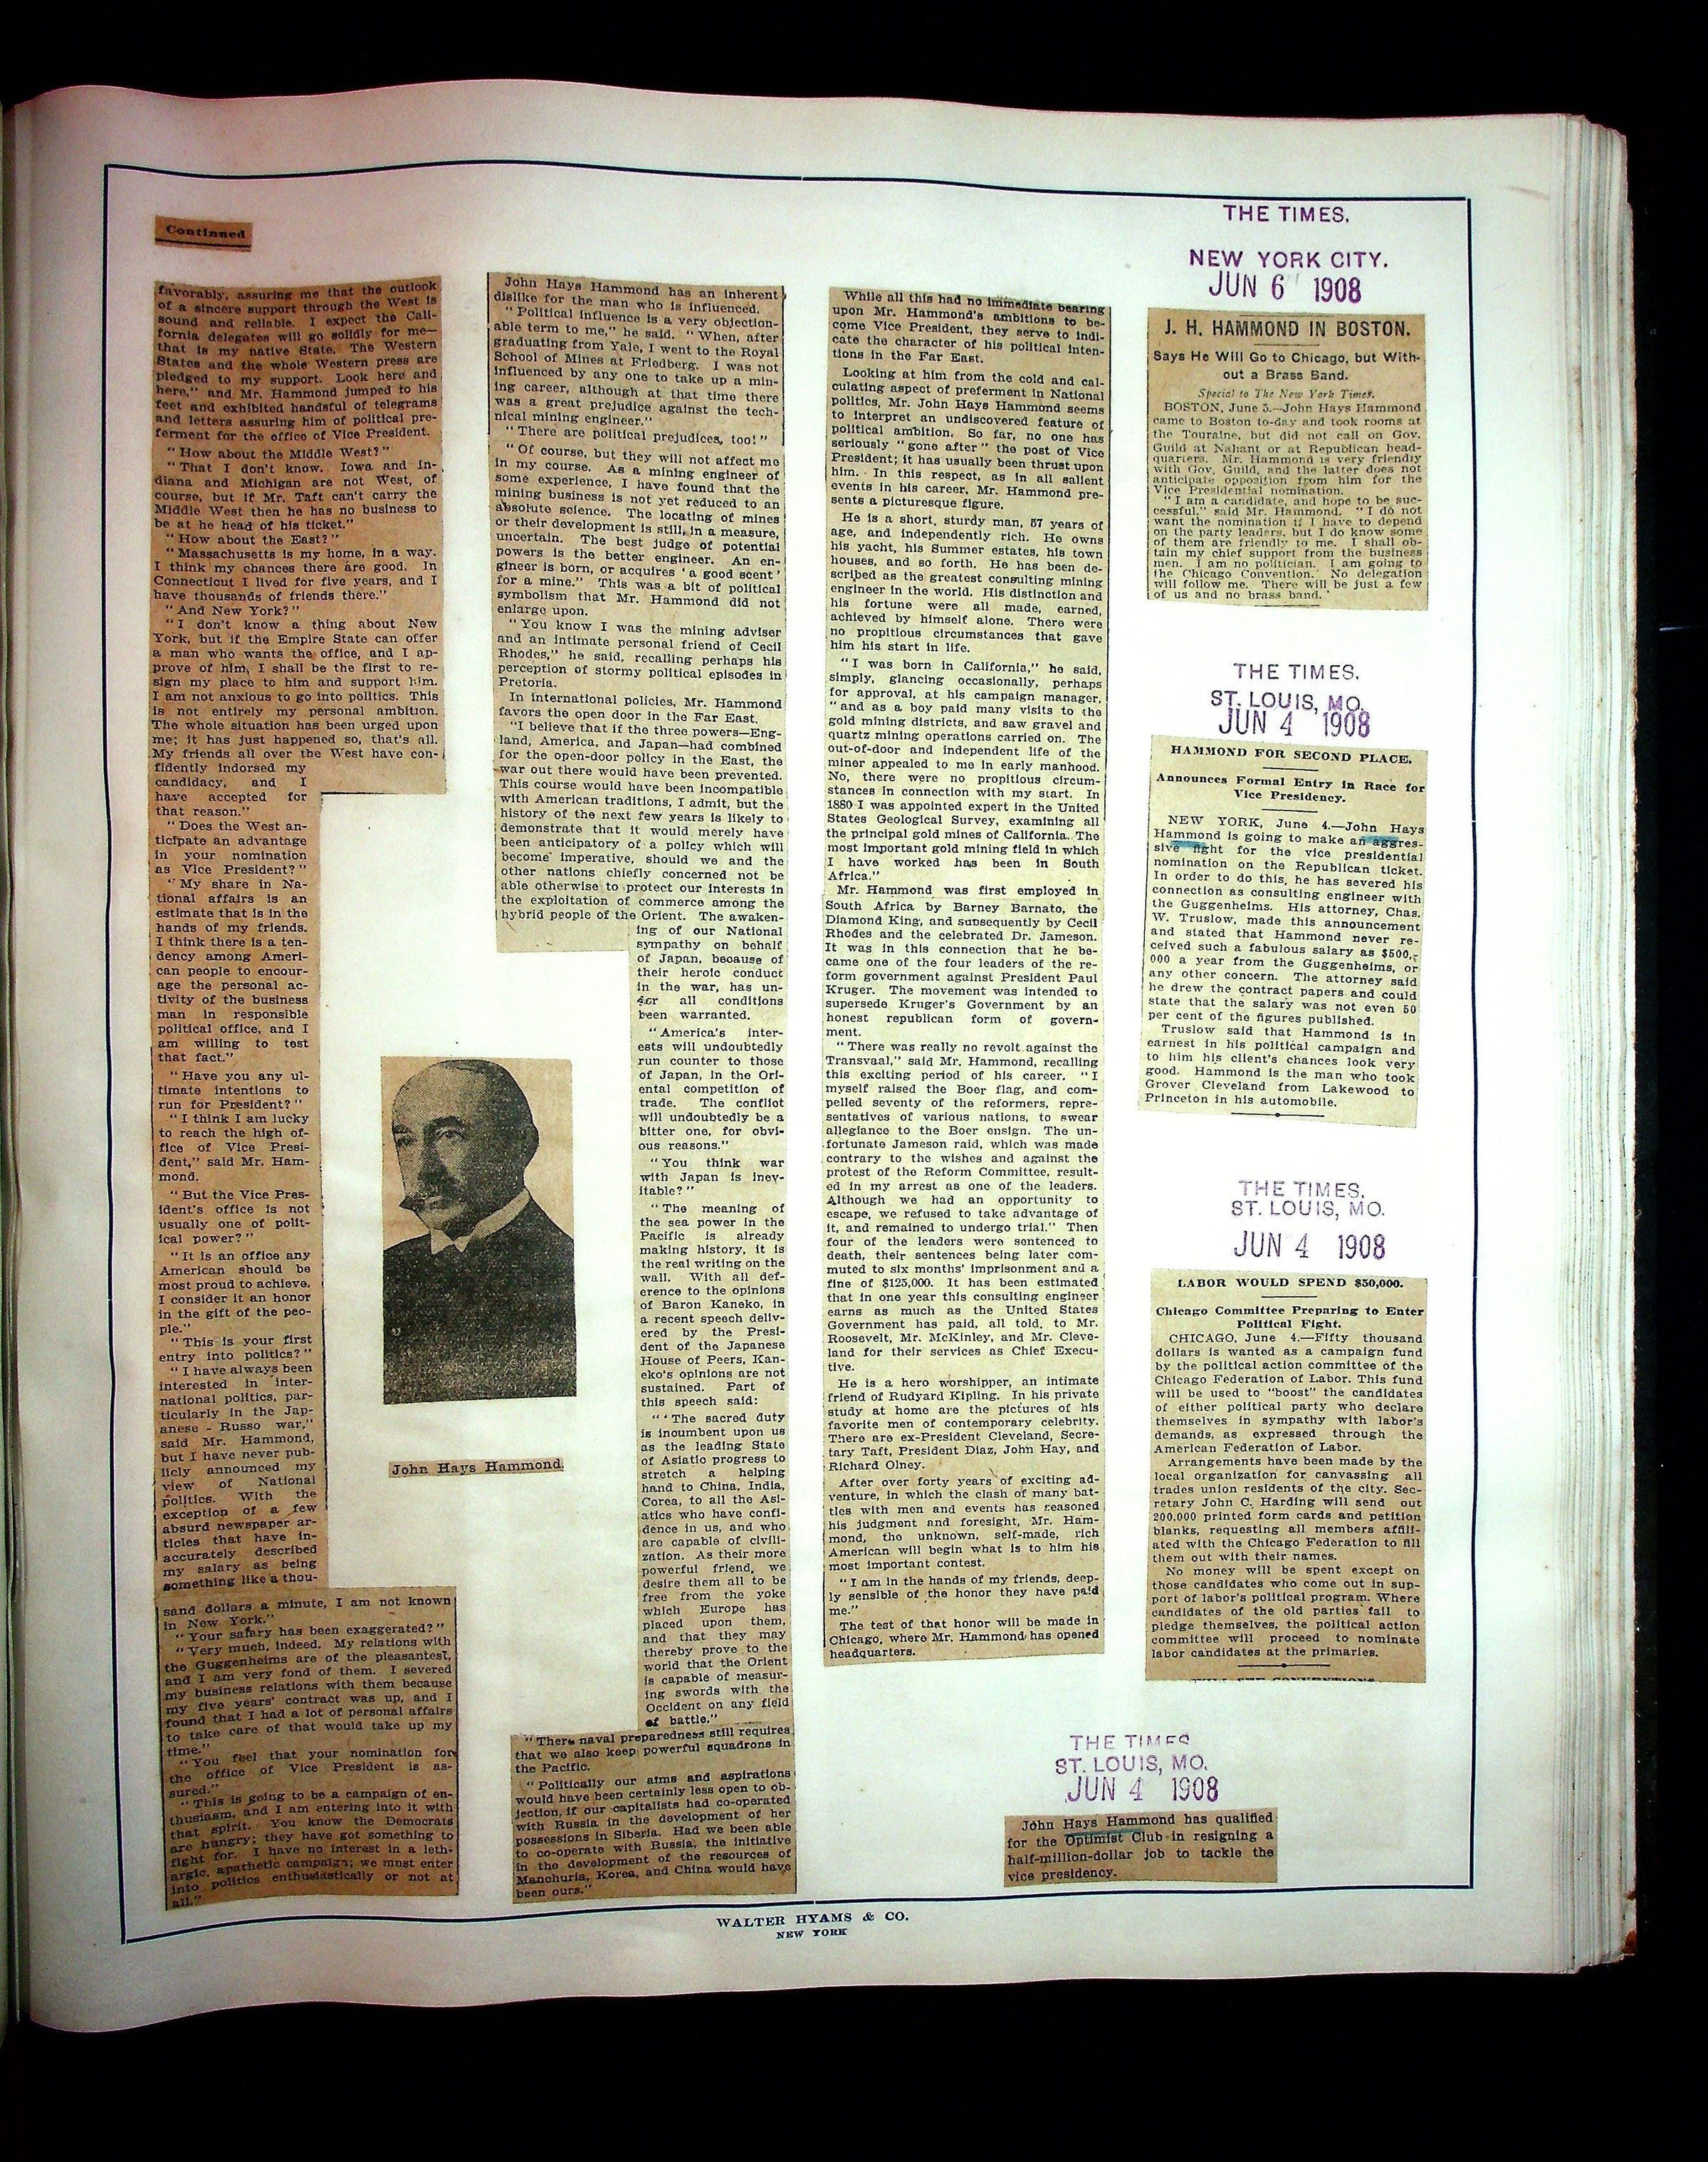 Continued
favorably, assuring me that the outlook
of a sincere support through the West is
sound and reliable. I expect the Cali-
fornia delegates will go solidly for me—
that is my native State. The Western
States and the whole Western press are
pledged to my support. Look here and
here," and Mr. Hammond jumped to his
feet and exhibited handsful of telegrams
and letters assuring him of political pre-
ferment for the office of Vice President.
"How about the Middle West?"
"That I don't know. Iowa and In-
diana and Michigan are not West, of
course, but if Mr. Taft can't carry the
Middle West then he has no business to
be at he head of his ticket."
"How about the East?"
"Massachusetts is my home, in a way.
I think my chances there are good. In
Connecticut I lived for five years, and I
have thousands of friends there."
"And New York?"
"I don't know a thing about New
York, but if the Empire State can offer
a man who wants the office, and I ap-
prove of him, I shall be the first to re-
sign my place to him and support him.
I am not anxious to go into politics. This
is not entirely my personal ambition.
The whole situation has been urged upon
me; it has just happened so, that's all.
My friends all over the West have con-
fidently indorsed my
candidacy, and I
have accepted for
that reason."
"Does the West an-
ticipate an advantage
in your nomination
as Vice President?"
"My share in Na-
tional affairs is an
estimate that is in the
hands of my friends.
I think there is a ten-
dency among Ameri-
can people to encour-
age the personal ac-
tivity of the business
man in responsible
political office, and I
am willing to test
that fact."
"Have you any ul-
timate intentions to
run for President?"
"I think I am lucky
to reach the high of-
fice of Vice Presi-
dent," said Mr. Ham-
mond.
"But the Vice Pres-
ident's office is not
usually one of polit-
ical power?"
"It is an office any
American should be
most proud to achieve.
I consider it an honor
in the gift of the peo-
ple."
"This is your first
entry into politics?"
"I have always been
interested in inter-
national politics, par-
ticularly in the Jap-
anese - Russo war,"
said Mr. Hammond,
but I have never pub-
licly announced my
view of National
politics. With the
exception of a few
absurd newspaper ar-
ticles that have in-
accurately described
my salary as being
something like a thou-
sand dollars a minute, I am not known
in New York."
"Your salary has been exaggerated?"
"Very much, indeed. My relations with
the Guggenheims are of the pleasantest,
and I am very fond of them. I severed
my business relations with them because
my five years' contract was up, and I
found that I had a lot of personal affairs
to take care of that would take up my
time."
"You feel that your nomination for
the office of Vice President is as-
sured."
"This is going to be a campaign of en-
thusiasm, and I am entering into it with
that spirit. You know the Democrats
are hungry; they have got something to
fight for. I have no interest in a leth-
argic, apathetic campaign; we must enter
into politics enthusiastically or not at
all."
John Hays Hammond.
John Hays Hammond has an inherent
dislike for the man who is influenced.
"Political influence is a very objection-
able term to me," he said. "When, after
graduating from Yale, I went to the Royal
School of Mines at Friedberg. I was not
influenced by any one to take up a min-
ing career, although at that time there
was a great prejudice against the tech-
nical mining engineer."
"There are political prejudices, too!"
"Of course, but they will not affect me
in my course. As a mining engineer of
some experience, I have found that the
mining business is not yet reduced to an
absolute science. The locating of mines
or their development is still, in a measure,
uncertain. The best judge of potential
powers is the better engineer. An en-
gineer is born, or acquires 'a good scent'
for a mine." This was a bit of political
symbolism that Mr. Hammond did not
enlarge upon.
"You know I was the mining adviser
and an intimate personal friend of Cecil
Rhodes," he said, recalling perhaps his
perception of stormy political episodes in
Pretoria.
In international policies, Mr. Hammond
favors the open door in the Far East.
"I believe that if the three powers—Eng-
land, America, and Japan—had combined
for the open-door policy in the East, the
war out there would have been prevented.
This course would have been incompatible
with American traditions, I admit, but the
history of the next few years is likely to
demonstrate that it would merely have
been anticipatory of a policy which will
become imperative, should we and the
other nations chiefly concerned not be
able otherwise to protect our interests in
the exploitation of commerce among the
hybrid people of the Orient. The awaken-
ing of our National
sympathy on behalf
of Japan, because of
their heroic conduct
in the war, has un-
der all conditions
been warranted.
"America's inter-
ests will undoubtedly
run counter to those
of Japan, in the Ori-
ental competition of
trade. The conflict
will undoubtedly be a
bitter one, for obvi-
ous reasons."
"You think war
with Japan is inev-
itable?"
"The meaning of
the sea power in the
Pacific is already
making history, it is
the real writing on the
wall. With all def-
erence to the opinions
of Baron Kaneko, in
a recent speech deliv-
ered by the Presi-
dent of the Japanese
House of Peers, Kan-
eko's opinions are not
sustained. Part of
this speech said:
"'The sacred duty
is incumbent upon us
as the leading State
of Asiatic progress to
stretch a helping
hand to China, India,
Corea, to all the Asi-
atics who have confi-
dence in us, and who
are capable of civili-
zation. As their more
powerful friend, we
desire them all to be
free from the yoke
which Europe has
placed upon them,
and that they may
thereby prove to the
world that the Orient
is capable of measur-
ing swords with the
Occident on any field
of battle."
"There naval preparedness still requires
that we also keep powerful squadrons in
the Pacific.
"Politically our aims and aspirations
would have been certainly less open to ob-
jection, if our capitalists had co-operated
with Russia in the development of her
possessions in Siberia. Had we been able
to co-operate with Russia, the initiative
in the development of the resources of
Manchuria, Korea, and China would have
been ours."
While all this had no immediate bearing
upon Mr. Hammond's ambitions to be-
come Vice President, they serve to indi-
cate the character of his political inten-
tions in the Far East.
Looking at him from the cold and cal-
culating aspect of preferment in National
politics, Mr. John Hays Hammond seems
to interpret an undiscovered feature of
political ambition. So far, no one has
seriously "gone after" the post of Vice
President; it has usually been thrust upon
him. In this respect, as in all salient
events in his career, Mr. Hammond pre-
sents a picturesque figure.
He is a short, sturdy man, 57 years of
age, and independently rich. He owns
his yacht, his Summer estates, his town
houses, and so forth. He has been de-
scribed as the greatest consulting mining
engineer in the world. His distinction and
his fortune were all made, earned,
achieved by himself alone. There were
no propitious circumstances that gave
him his start in life.
"I was born in California," he said,
simply, glancing occasionally, perhaps
for approval, at his campaign manager,
"and as a boy paid many visits to the
gold mining districts, and saw gravel and
quartz mining operations carried on. The
out-of-door and independent life of the
miner appealed to me in early manhood.
No, there were no propitious circum-
stances in connection with my start. In
1880 I was appointed expert in the United
States Geological Survey, examining all
the principal gold mines of California. The
most important gold mining field in which
I have worked has been in South
Africa."
Mr. Hammond was first employed in
South Africa by Barney Barnato, the
Diamond King, and subsequently by Cecil
Rhodes and the celebrated Dr. Jameson.
It was in this connection that he be-
came one of the four leaders of the re-
form government against President Paul
Kruger. The movement was intended to
supersede Kruger's Government by an
honest republican form of govern-
ment.
"There was really no revolt against the
Transvaal," said Mr. Hammond, recalling
this exciting period of his career. "I
myself raised the Boer flag, and com-
pelled seventy of the reformers, repre-
sentatives of various nations, to swear
allegiance to the Boer ensign. The un-
fortunate Jameson raid, which was made
contrary to the wishes and against the
protest of the Reform Committee, result-
ed in my arrest as one of the leaders.
Although we had an opportunity to
escape, we refused to take advantage of
it, and remained to undergo trial." Then
four of the leaders were sentenced to
death, their sentences being later com-
muted to six months' imprisonment and a
fine of $125,000. It has been estimated
that in one year this consulting engineer
earns as much as the United States
Government has paid, all told, to Mr.
Roosevelt, Mr. McKinley, and Mr. Cleve-
land for their services as Chief Execu-
tive.
He is a hero worshipper, an intimate
friend of Rudyard Kipling. In his private
study at home are the pictures of his
favorite men of contemporary celebrity.
There are ex-President Cleveland, Secre-
tary Taft, President Diaz, John Hay, and
Richard Olney.
After over forty years of exciting ad-
venture, in which the clash of many bat-
tles with men and events has seasoned
his judgment and foresight, Mr. Ham-
mond, the unknown, self-made, rich
American will begin what is to him his
most important contest.
"I am in the hands of my friends, deep-
ly sensible of the honor they have paid
me."
The test of that honor will be made in
Chicago, where Mr. Hammond has opened
headquarters.
THE TIMES.
NEW YORK CITY.
JUN 6 1908
J. H. HAMMOND IN BOSTON.
Says He Will Go to Chicago, but With-
out a Brass Band.
Special to The New York Times.
BOSTON, June 5.—John Hays Hammond
came to Boston to-day and took rooms at
the Touraine, but did not call on Gov.
Guild at Nahant or at Republican head-
quarters. Mr. Hammond is very friendly
with Gov. Guild, and the latter does not
anticipate opposition from him for the
Vice Presidential nomination.
"I am a candidate, and hope to be suc-
cessful," said Mr. Hammond. "I do not
want the nomination if I have to depend
on the party leaders, but I do know some
of them are friendly to me. I shall ob-
tain my chief support from the business
men. I am no politician. I am going to
the Chicago Convention. No delegation
will follow me. There will be just a few
of us and no brass band."
THE TIMES.
ST. LOUIS, MO.
JUN 4 1908
HAMMOND FOR SECOND PLACE.
Announces Formal Entry in Race for
Vice Presidency.
NEW YORK, June 4.—John Hays
Hammond is going to make an aggres-
sive fight for the vice presidential
nomination on the Republican ticket.
In order to do this, he has severed his
connection as consulting engineer with
the Guggenheims. His attorney, Chas.
W. Truslow, made this announcement
and stated that Hammond never re-
ceived such a fabulous salary as $500,-
000 a year from the Guggenheims, or
any other concern. The attorney said
he drew the contract papers and could
state that the salary was not even 50
per cent of the figures published.
Truslow said that Hammond is in
earnest in his political campaign and
to him his client's chances look very
good. Hammond is the man who took
Grover Cleveland from Lakewood to
Princeton in his automobile.
THE TIMES.
ST. LOUIS, MO.
JUN 4 1908
LABOR WOULD SPEND $50,000.
Chicago Committee Preparing to Enter
Political Fight.
CHICAGO, June 4.—Fifty thousand
dollars is wanted as a campaign fund
by the political action committee of the
Chicago Federation of Labor. This fund
will be used to "boost" the candidates
of either political party who declare
themselves in sympathy with labor's
demands, as expressed through the
American Federation of Labor.
Arrangements have been made by the
local organization for canvassing all
trades union residents of the city. Sec-
retary John C. Harding will send out
200,000 printed form cards and petition
blanks, requesting all members affili-
ated with the Chicago Federation to fill
them out with their names.
No money will be spent except on
those candidates who come out in sup-
port of labor's political program. Where
candidates of the old parties fail to
pledge themselves, the political action
committee will proceed to nominate
labor candidates at the primaries.
THE TIMES
ST. LOUIS, MO.
JUN 4 1908
John Hays Hammond has qualified
for the Optimist Club in resigning a
half-million-dollar job to tackle the
vice presidency.
WALTER HYAMS & CO.
NEW YORK